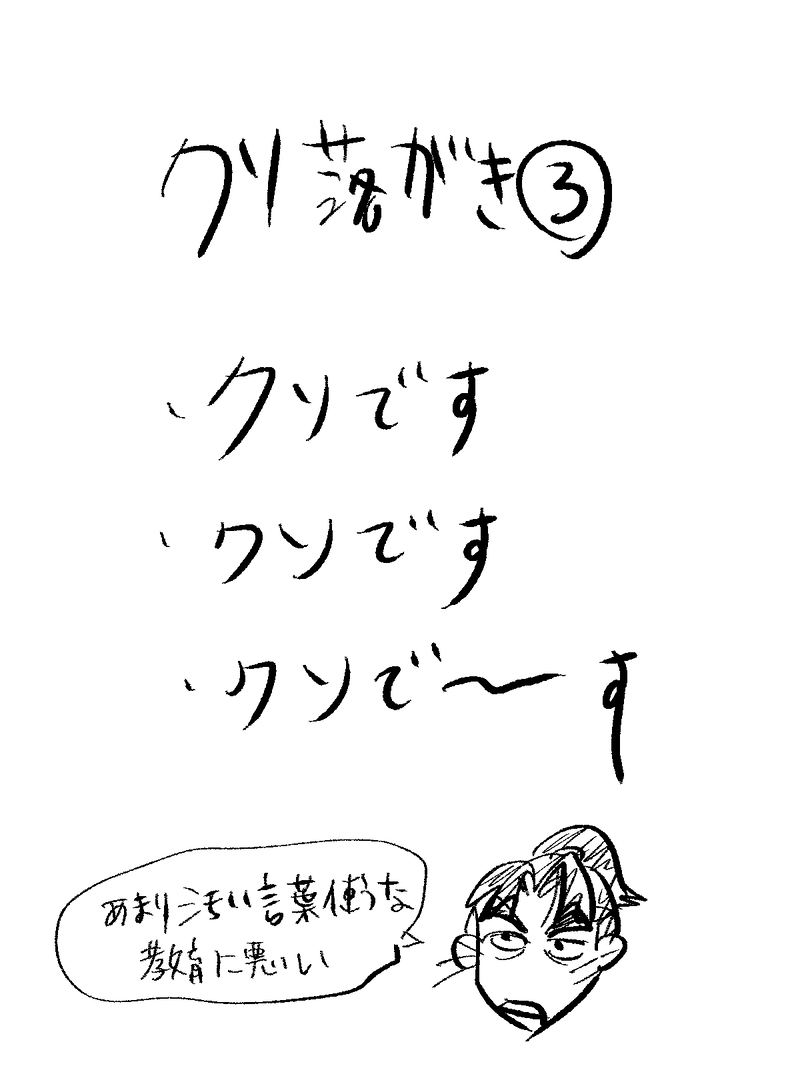 クソ落がき③
・クソです
・クソです
・クソで〜す
あまり汚い言葉使うな
教育に悪いし